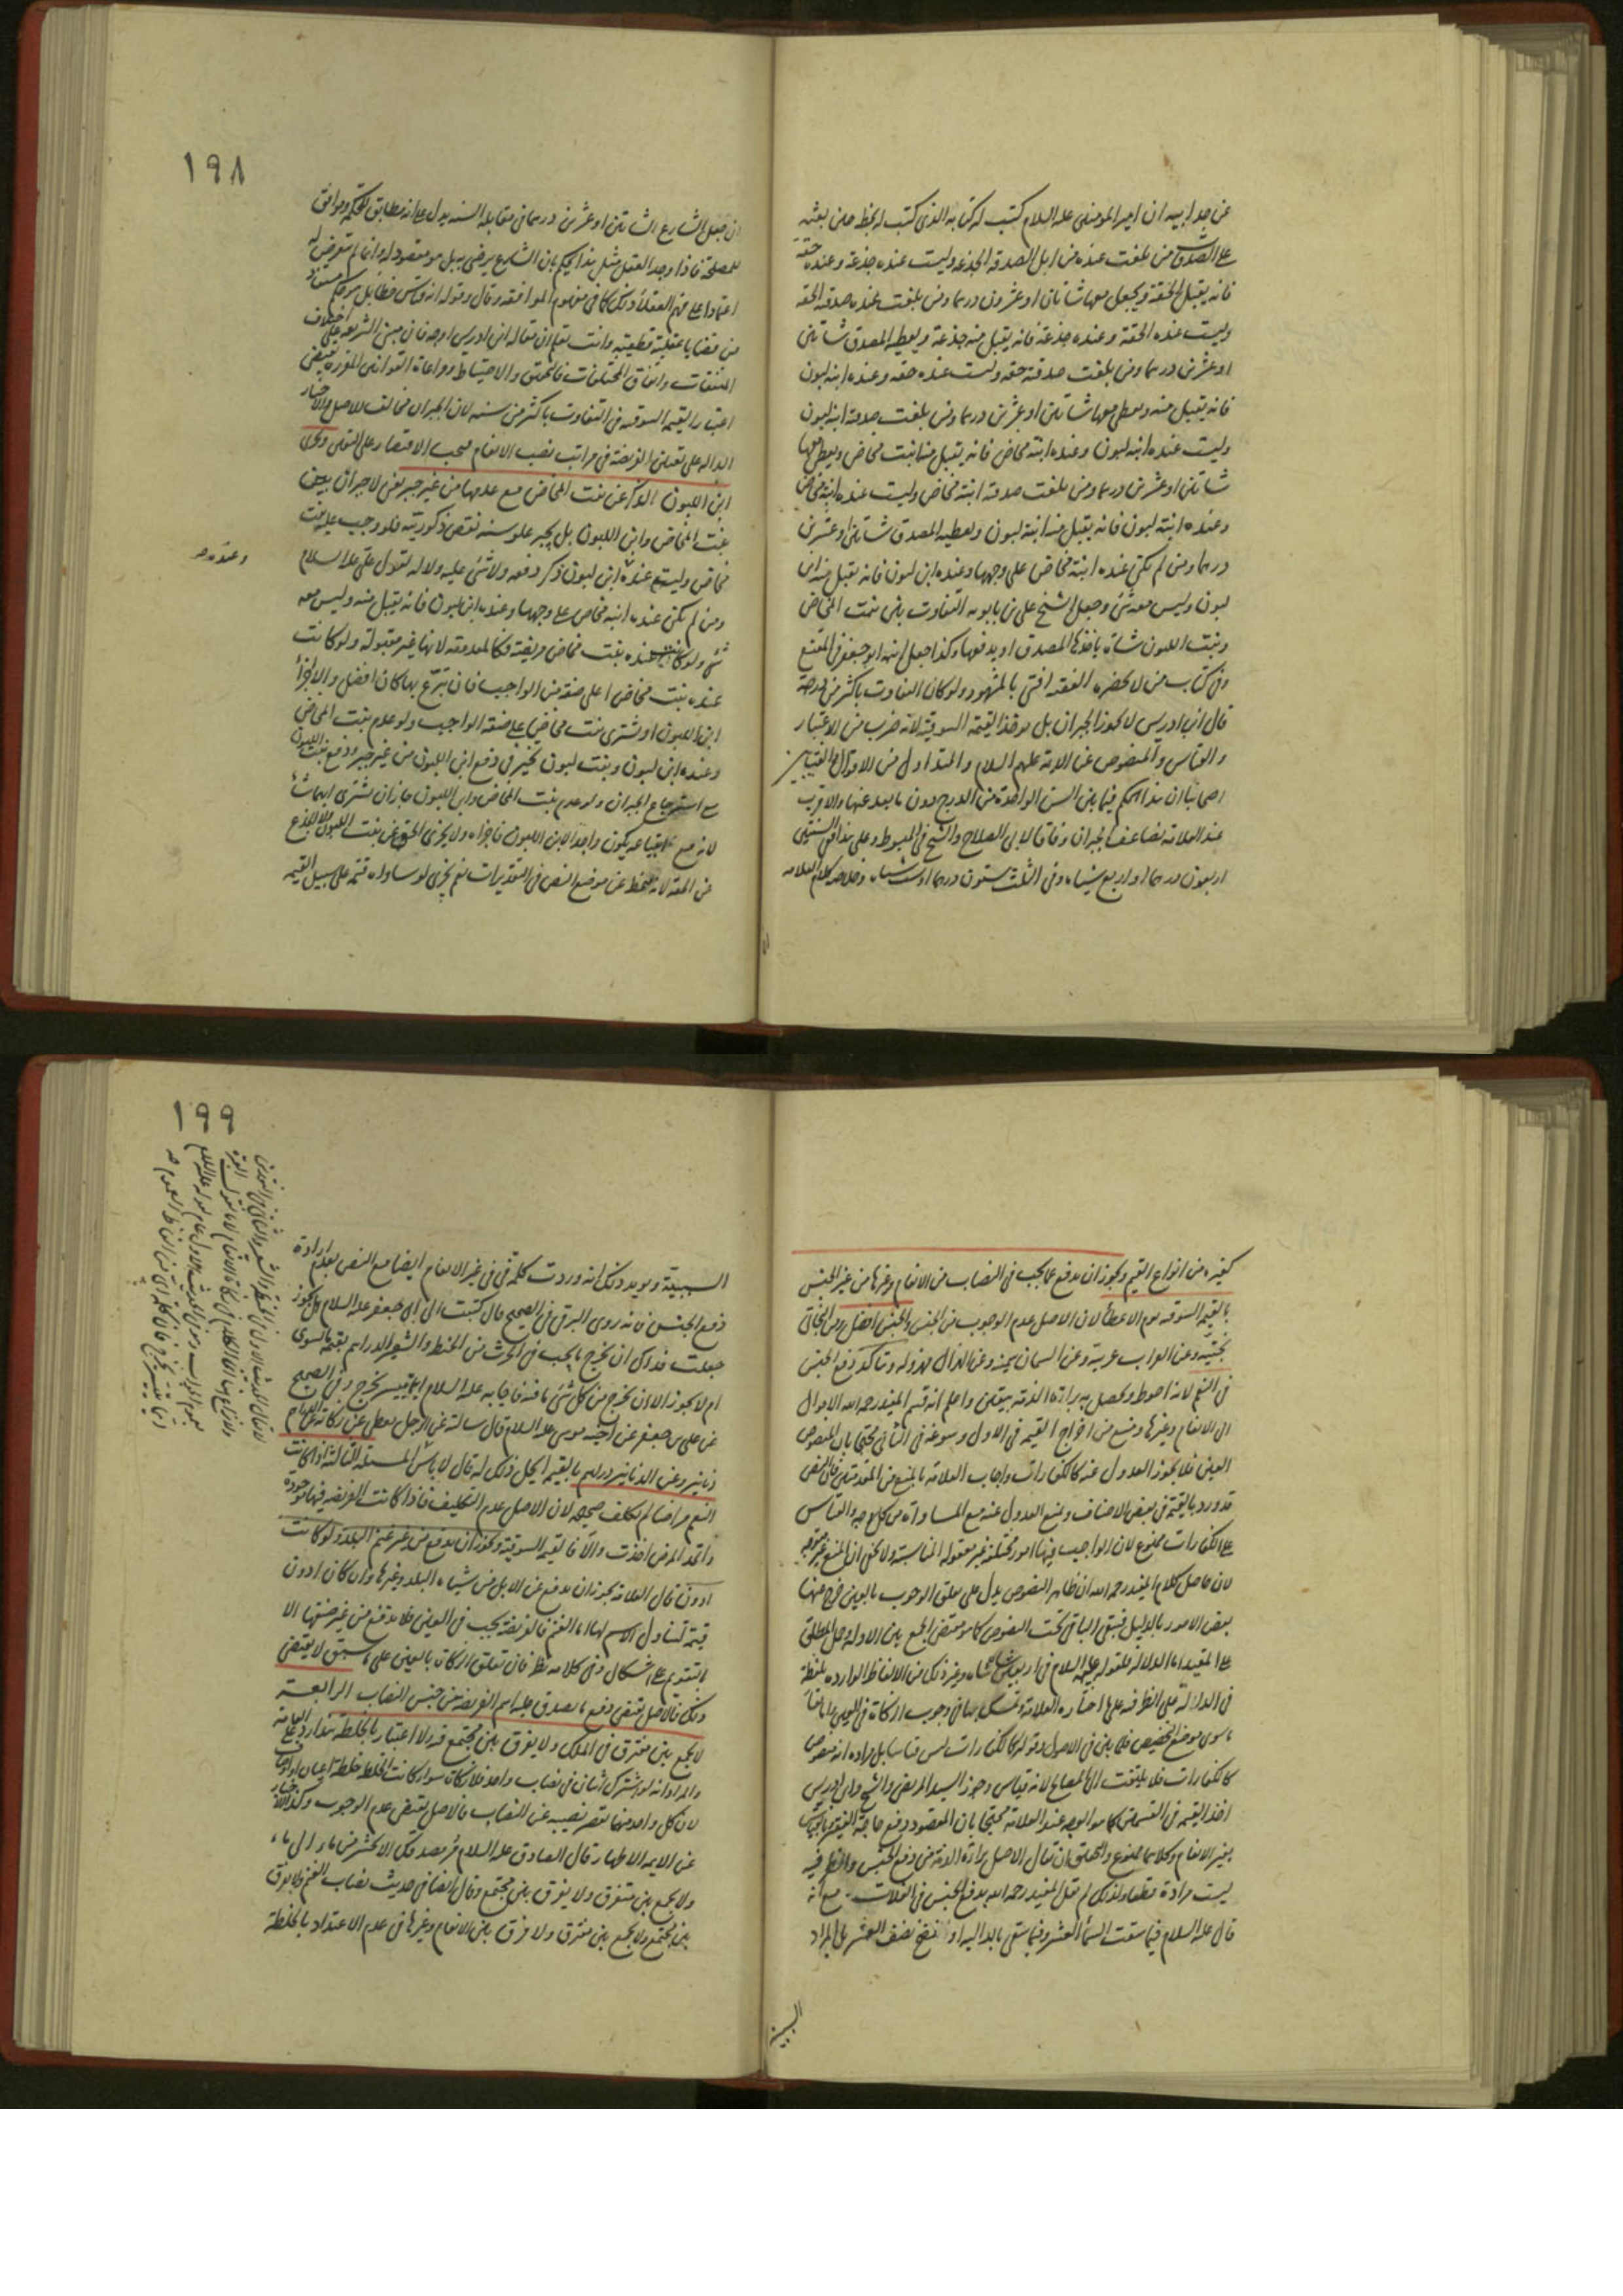 عن جد ابيه ان امير المومنين عليه السلام كتب له كتابه الذي كتب له بخطه حين بعثه
على الصدقات من بلغت عنده من ابل الصدقة الجذعة وليست عنده جذعة وعنده حقة
فانه يقبل الحقة ويجعل معها شاتان او عشرون درهما ومن بلغت عنده صدقة الحقة
وليست عنده الحقة وعنده جذعة فانه يقبل منه جذعة ويعطيه المصدق شاتين
او عشرين درهما ومن بلغت صدقته حقه وليست عنده حقه وعنده ابنه لبون
فانه يقبل منه ويعطى معها شاتين او عشرين درهما ومن بلغت صدقة ابنه لبون
وليست عنده ابنه لبون وعنده ابنة مخاض فانه يقبل منه ابنت مخاض ويعطى معها
شاتين او عشرين درهما ومن بلغت صدقة ابنة مخاض وليست عنده ابنة مخاض
وعنده ابنة لبون فانه يقبل منه ابنة لبون ويعطيه المصدق شاتين او عشرين
درهما ومن لم يكن عنده ابنة مخاض على وجهها وعنده ابن لبون فانه يقبل منه ابن
لبون وليس معه شئ وجعل الشيخ علي بن بابويه التفاوت بين بنت المخاض
وبنت اللبون شاة ياخذها المصدق او يدفعها وكذا جعل ابنه ابو جعفر في المقنع
وفي كتاب من لا يحضره الفقيه افتى بالمشهور ولو كان التفاوت باكثر من درجة
قال ابن ادريس لا يجوز الجبران بل يوخذ القيمة السوقية لانه ضرب من الاعتبار
والقياس والمنصوص عن الائمة عليهم السلام والمتداول من الاقوال والفتيا بين
اصحابنا ان هذا الحكم فيما بين السن الواحدة من الدرج دون ما بعد عنها والاقرب
عند العلامة تضاعف الجبران وفاقا لابي الصلاح والشيخ في المبسوط وعلى هذا ففي السنتين
اربعون درهما او اربع شياه وفي الثلث ستون درهما او ست شياه وخلاصة كلام العلامه
١٩٨
ان جعل الشارع الشاتين او عشرين درهما في مقابله السنه يدل على انه مطابق للحكمة وموافق
للمصلحة فاذا وجد العقل مثل هذا يحكم بان الشارع يرضى به بل هو مقصود له وانما لم يتعرض له
اعتمادا على فهم العقلاء وذلك كما في مفهوم الموافقه وقال وقوله انه قياس خطا بل هو حكم مستفاد
من قضايا عقلية قطعيته وانت تعلم ان مقاله ابن ادريس اوجه فان مبنى الشريعة على اختلاف
المتفقات واتفاق المختلفات فالتحقيق والاحتياط ومراعاة القوانين المقررة يقتضى
اعتبار القيمه السوقيه في التفاوت باكثر من سنه لان الجبران مخالف للاصل والاخبار
الداله على تعيين الفريضة في مراتب نصب الانعام فيجب الاقتصار على اليقين ويجزى
ابن اللبون الذكر عن بنت المخاض مع عدمها من غير جبر يعنى لا جبران بين
بنت المخاض وابن اللبون بل يجبر علو سنه نقص ذكوريته فلو وجب عليه بنت
مخاض وليست عنده ابن لبون ذكر دفعه ولا شئ عليه ولا له لقول علي عليه السلام
وعنده صح
ومن لم يكن عنده ابنه مخاض على وجهها وعنده ابن لبون فانه يقبل منه وليس معه
شئ ولو كانت عنده بنت مخاض مريضة فكالمعدومة لانها غير مقبولة ولو كانت
عنده بنت مخاض اعلى صفة من الواجب فان تبرع بها كان افضل والا اجزأ
ابن اللبون او يشترى بنت مخاض على صفة الواجب ولو عدم بنت المخاض
وعنده ابن لبون وبنت لبون تخير في دفع ابن اللبون من غير جبر ودفع بنت اللبون
مع استرجاع الجبران ولو عدم بنت المخاض وابن اللبون جاز ان يشترى ايهما شاء
لانه مع ابتياعه يكون واجدا لابن اللبون فاجزاه ولا يجزى الحق عن بنت اللبون ولا الجذع
عن الحقة لانه يخرج عن موضع النص في التقديرات نعم يجزى لو ساواه قيمة على سبيل القيمه
كغيره من انواع القيم ويجوز ان يدفع عما يجب في النصاب من الانعام وغيرها من غير الجنس
بالقيمه السوقيه يوم الاعطاء لان الاصل عدم الوجوب من الجنس والجنس افضل ومن البخاتي
بختية وعن العراب عربية وعن السمان سمينه وعن الهزال مهزوله ويتاكد دفع الجنس
في النعم لانه احوط ويحصل به براءة الذمه بيقين واعلم انه قسم المفيد رحمه الله الاموال
الى الانعام وغيرها ومنع من اخراج القيمه في الاول وسوغه في الثاني محتجا بان المنصوص
العين فلا يجوز العدول عنه كالكفارات واجاب العلامه بالمنع من المقدمتين فان النص
قد ورد بالقيمة في بعض الاصناف ونمنع العدول عنه مع المساواة من كل وجه والقياس
على الكفارات ممنوع لان الواجب فيها امور مختلفه غير معقوله المناسبة ولا يخفى ان المنع غير متوجه
لان حاصل كلام المفيد رحمه الله ان ظاهر النصوص يدل على تعلق الوجوب بالعين خرج منها
بعض الامور بالدليل فيبقى الباقي تحت النصوص كما هو مقتضى الجمع بين الادله وحمل المطلق
على المقيد اما الدلاله فلقوله عليه السلام في اربعين شاه شاه وغير ذلك من الالفاظ الوارده بلفظة
في الدالة على الظرفيه على ما اختاره العلامه وتمسك بها في وجوب الزكاة في العين واما
ما سوى موضع التخصيص فلما بين في الاصول وقوله كالكفارات ليس قياسا بل مراده انه منصوص
كالكفارات فلا يلتفت الى المصالح لانه قياس وجوز السيد المرتضى والشيخ وابن ادريس
اخذ القيمه في القسمين كما هو الوجه عند العلامه محتجا بان المقصود دفع حاجة الفقير
بغير الانعام وكلاهما ممنوع والتحقيق ان يقال الاصل براءة الذمه من دفع الجنس والظرفيه
ليست مرادة قطعا ولذلك لم يقل المفيد رحمه الله بدفع الجنس في الغلات مع انه
قال عليه السلام فيما سقت السماء العشر وفيما سقى بالدالية او النضح نصف العشر بل المراد
السببية
١٩٩
السببية ويويد ذلك انه وردت كلمة في في غير الانعام ايضا مع النص بعدم ارادة
دفع الجنس فانه روى البرقي في الصحيح قال كتبت الى ابي جعفر عليه السلام هل يجوز
جعلت فداك ان يخرج ما يجب في الحرث من الحنطه والشعير الدراهم بقيمة ما يسوى
ام لا يجوز الا ان يخرج من كل شئ ما فيه فاجابه عليه السلام ايما تيسر يخرج وفي الصحيح
عن علي بن جعفر عن اخيه موسى عليه السلام قال سالته عن الرجل يعطى عن زكاته عن الدراهم
دنانير وعن الدنانير دراهم بالقيمه ايحل ذلك له قال لا باس المسئلة الثالثه اذا كانت
النعم مراضا لم يكلف صحيحه لان الاصل عدم التكليف فاذا كانت الفريضه فيها موجودة
واتحد المرض اخذت والا فالقيمه السوقية ويجوز ان يدفع من غير غنم البلد ولو كانت
ادون قال العلامه يجوز ان يدفع عن الابل من شياه البلد وغيرها وان كان ادون
قيمة لتناول الاسم لها اما الغنم فالفريضة يجب في العين فلا يدفع من غير صنفها الا
بالتقويم على اشكال وفي كلامه نظر فان تعلق الزكاة بالعين على ما سبق لا يقتضى
ذلك فالاصل يقتضى دفع ما يصدق عليه اسم الفريضه من جنس النصاب الرابعة
لا يجمع بين مفترق في الملك ولا يفرق بين مجتمع فيه ولا اعتبار بالخلطة هذا رد على العامة
والمراد انه لو اشترك اثنان في نصاب واحد فلا زكاة سواء كانت الخلطه خلطة اعيان او اوصاف
لان كل واحد منهما يقصر نصيبه عن النصاب فالاصل يقتضى عدم الوجوب وكذا الاخبار
عن الايمه الاطهار قال الصادق عليه السلام
ولا يجمع بين متفرق ولا يفرق بين مجتمع وقال ايضا في حديث نصاب الغنم ولا يفرق
بين مجتمع ولا يجمع بين مفترق ولا فرق بين الانعام وغيرها في عدم الاعتداد بالخلطة